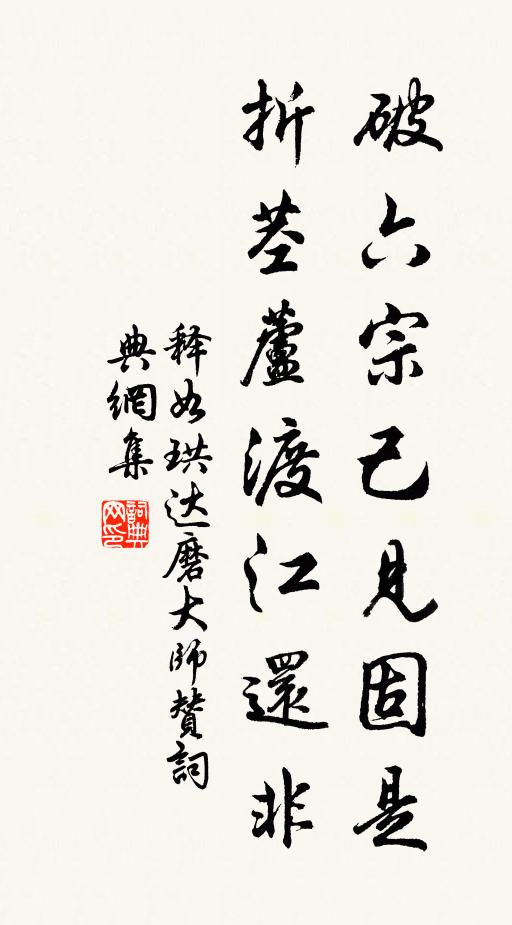 破六宗己見固是
折茎蘆渡江還非
释如珙达磨大師賛詞
典網集
詞典网印